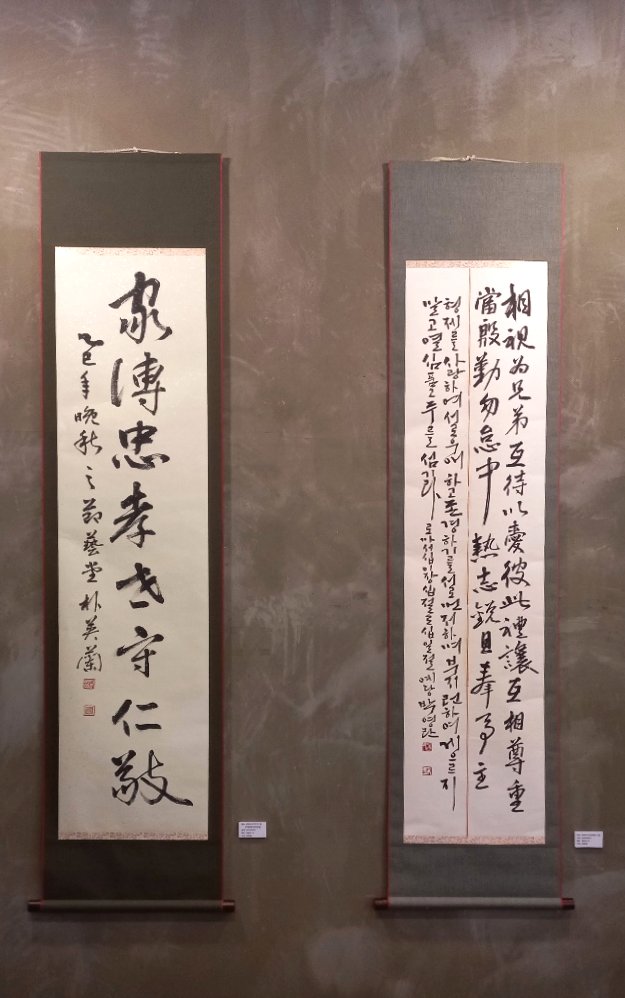 家傳忠孝世守仁敬
乙巳年晩秋之節藝堂朴英蘭
相視为兄弟互待以愛彼此禮讓互相尊重
當殷勤勿怠中熱志銳且奉事主
형제를사랑하여서로우애하고존경하기를서로먼저하며부지런하여게으르지
말고열심품고주를섬기라 로마서십이장십절로십일절 예당박영란